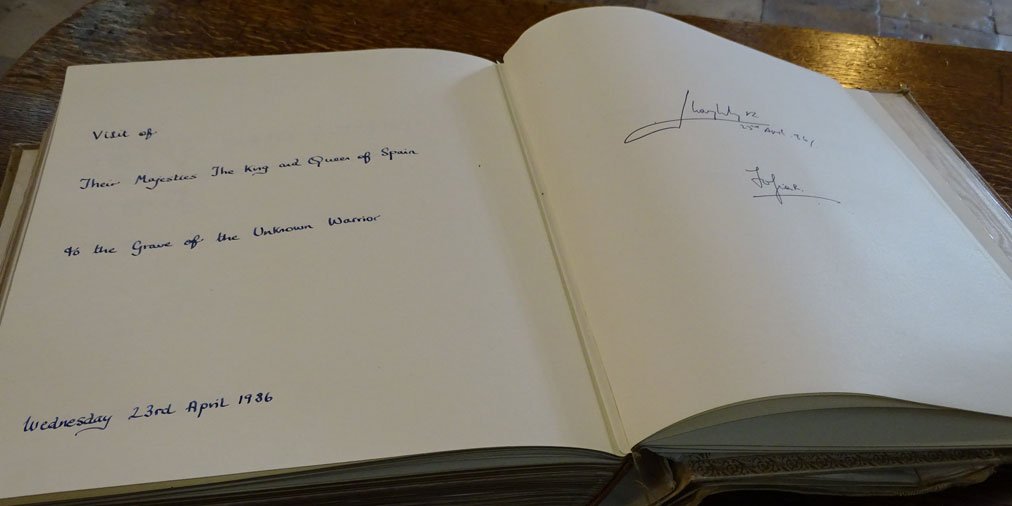 Visit of
Their Majesties The King and Queen of Spain
to the Grave of the Unknown Warrior
Wednesday 23rd April 1986
23rd April. 86,
Sofia R.